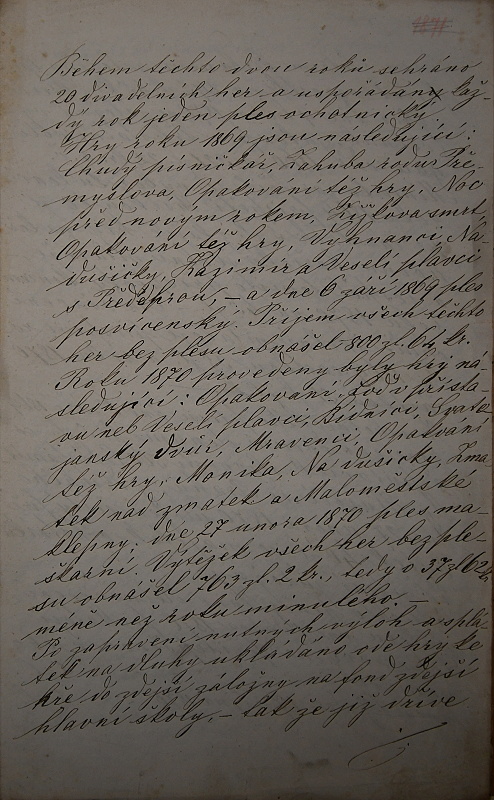 Během těchto dvou roků sehráno
20 divadelních her a uspořádány kaž-
dý rok jeden ples ochotnický
Hry roku 1869 jsou následující:
Chudý písničkář, Zahuba rodu Pře-
myslova, Opakovaní též hry, Noc
před novým rokem, Žižkova smrt,
Opakování též hry, Vyhnanci, Na
dušičky, Kazimír a Veselí plavci
s Předehrou, – a dne 6 září 1869 ples
posvícenský. Příjem všech těchto
her bez plesu obnášel 800 zl. 64 kr.
Roku 1870 provedeny byly hry ná-
sledující: Opakovaní: Lodě v přísta-
vu neb Veselí plavci, Bídníci, Svato-
janský dvůr, Mravenci, Opakvaní
též hry, Monika, Na dušičky, Zma-
tek nad zmatek a Maloměstské
klepny; dne 27 unora 1870 ples ma-
škarní. Výtěžek všech her bez ple-
su obnášel 763 zl. 2 kr., tedy o 37 zl 62 kr
méně než roku minulého. –
Po zapravení nutných výloh a splá-
tek na dluhy ukládáno ode hry ke
hře do zdejší záložny na fond zdejší
hlavní školy, – tak že již dříve